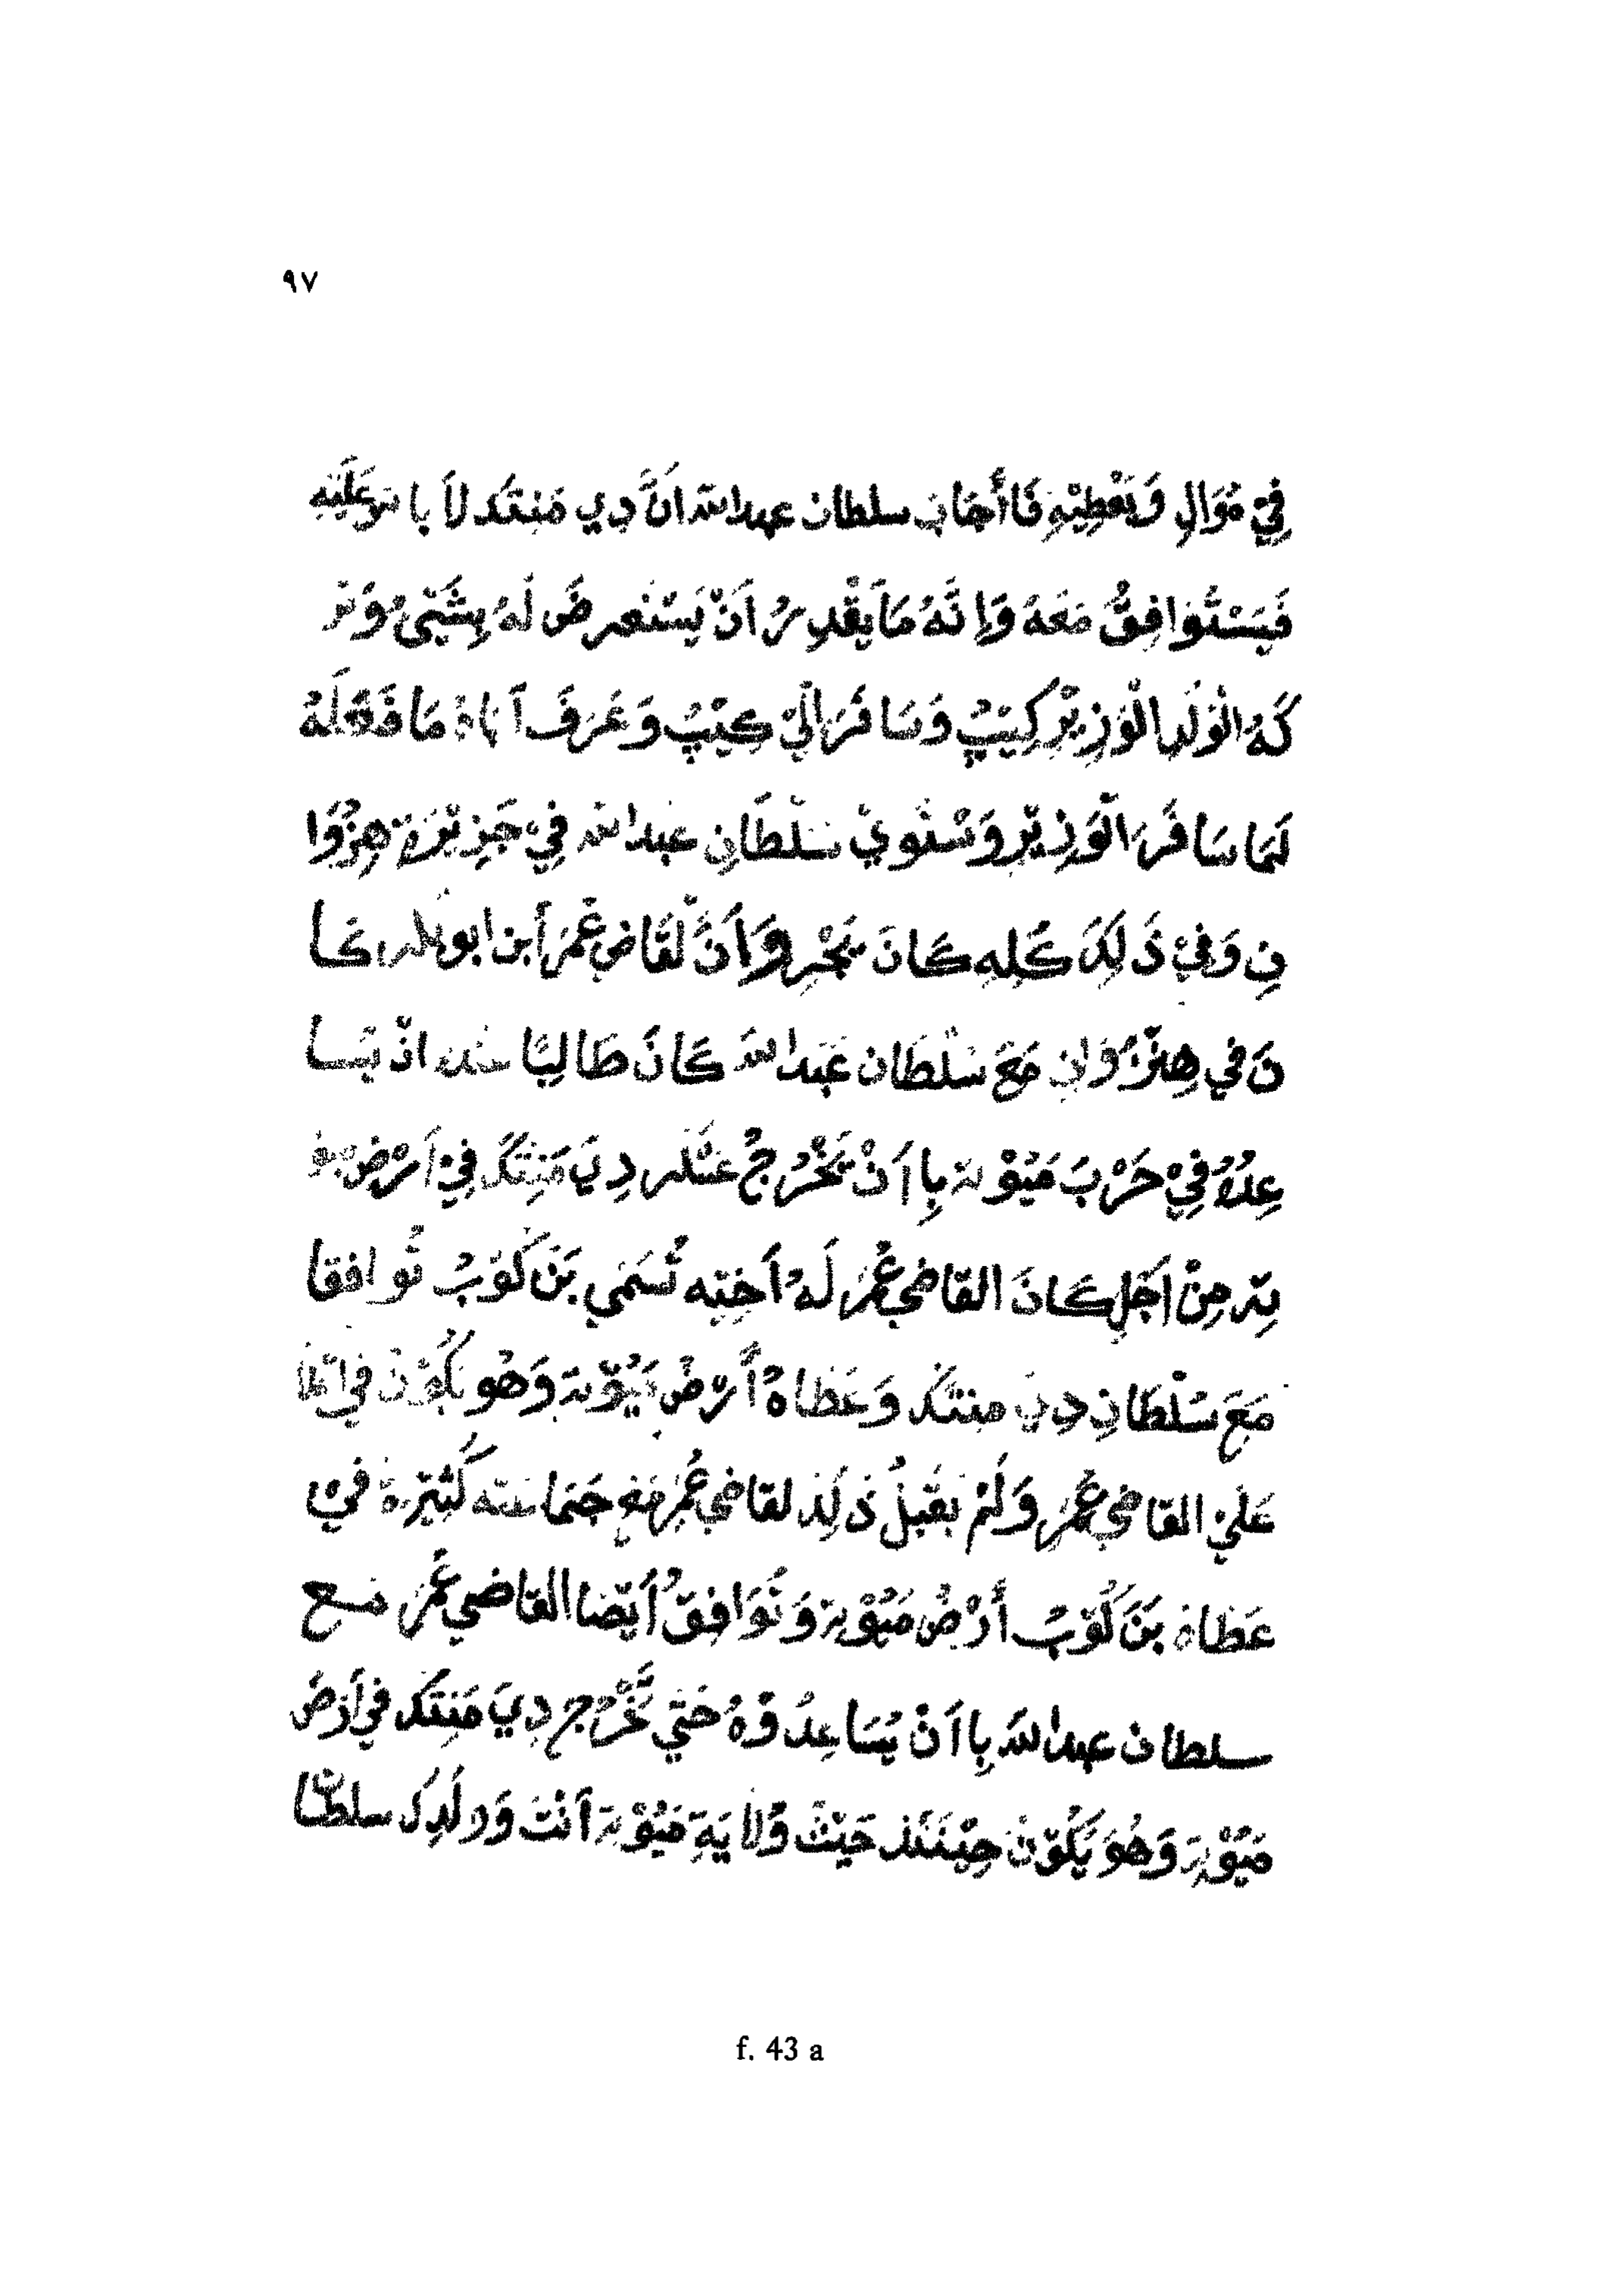 ٩٧
فِيْ مُوَالِ وَيَعْطِيْهِ فَاأَجَابَ سلطان عبدالله اَنَّ دِي مَنِتَكَد لاَ يا عَلَيْهِ
فَيَسْتَوَافِقُ مَعَهُ وَاِنَّهُ مَايَقْدِرُ اَنْ يَسْتَعرِضَ لَهُ بِشَيْئٍ وَتر
كَهُ الْوَلَدِ الْوَزِيْرِ كِيَبُ وَسَافَرَ اِلَيْ كِيَبُ وَعَرَفَ اَبَاهُ مَا فَعَلَهُ
لَمَا سَافَرَ الْوَزِيْرِ وَسْتَوِيْ سَلْطَانِ عبدالله فِيْ جَزِيْرَةِ هِزُوَا
نِ وَفِيْ ذَلِكَ كُلِهِ كَانَ يَجْرِ وَاَنَّ لْقَاضِي عُمَرْ اَبن ابو كا
نَ فِي هِنْزُوَانِ مَعَ سُلْطَان عَبدالله كَانَ طَالِبًا اَنْ يسا
عِدُهُ فِيْ حَرْبَ مَيُوْتة بِااَنْ يَخْرُجُ دِيَ مَنِتَكَ فِيْ اَرْض مو
تِة مِنْ اَجَلِ كَانَ القاضِي عُمَرْ لَهُ اَخِته تُسَمَي بَنَ كُوَبُ تُوَافقا
مَعَ سُلْطَانِ دِيَ مِنتَكَ وَعَطَاهُ اَرْضُ مَيُوْتة وَهُو يَكُوْنُ في
عَلَيْ القاضِي عُمَرْ وَلَمْ يَقْبَلُ ذَلِكَ لقاضِي عُمَرْ مَعِ جَمَاعته كَثِيْرَة فيْ
عَطَاهُ بَنَ كُوَبُ أَرْضُ مَيُوْتة وَتُوَافِقُ اَيْضا القاضِي عُمَرْ مَع
سلطان عبدالله بِااَنْ يُسَاعِدُوْهُ حَتَي تَخْرُج دِيَ مَنِتَكَ فِي اَرْضُ
مَيُوْتِة وَهُوَ يَكُوْنُ حِيْنَئَذ حَيْثُ وُلاَيَةِ مَيُوْتة اَنْتَ وَوَلَدِكَ سلطان
f. 43 a